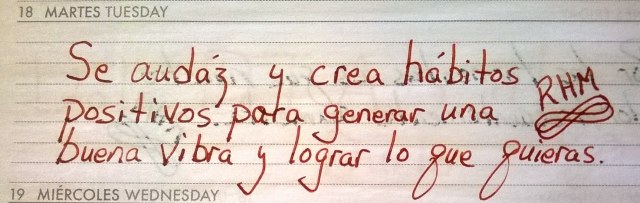 18 MARTES TUESDAY
Se audáz y crea hábitos
RHM
positivos para generar una
buena vibra y lograr lo que quieras.
19 MIÉRCOLES WEDNESDAY